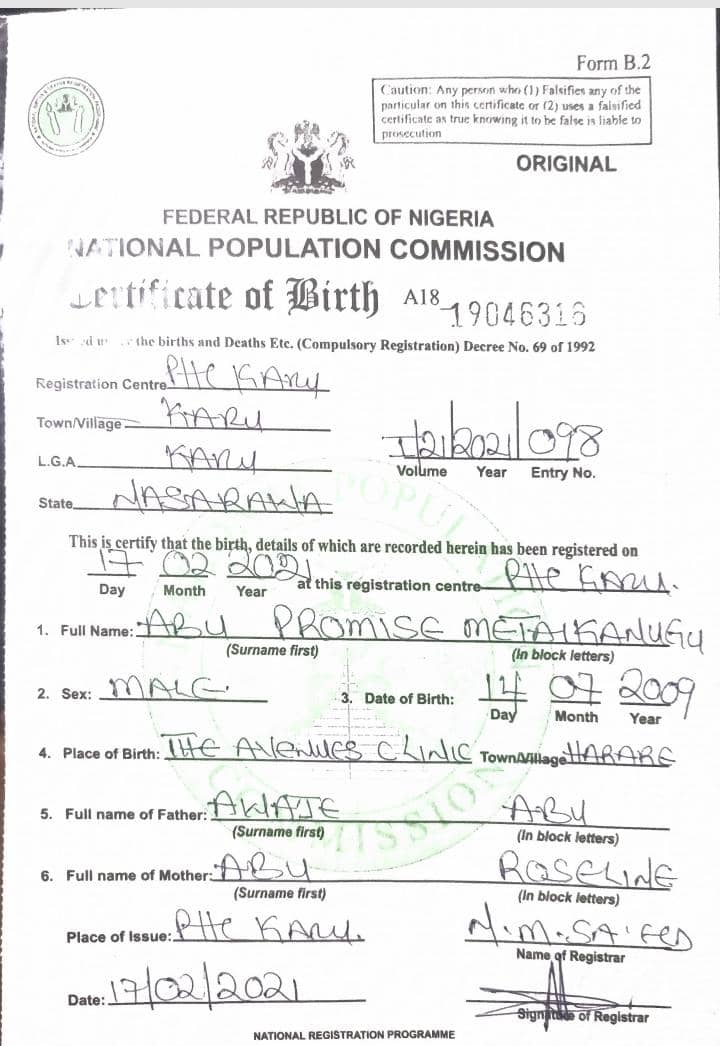 Form B.2
Caution: Any person who (1) Falsifies any of the
particular on this certificate or (2) uses a falsified
certificate as true knowing it to be false is liable to
prosecution
ORIGINAL
FEDERAL REPUBLIC OF NIGERIA
NATIONAL POPULATION COMMISSION
Certificate of Birth A18 19046316
the births and Deaths Etc. (Compulsory Registration) Decree No. 69 of 1992
Registration Centre PHC KARU
Town/Village KARU
L.G.A. KARU
State NASARAWA
I/21/2021/098
Volume Year Entry No.
This is certify that the birth, details of which are recorded herein has been registered on
17 02 2021 at this registration centre PHC KARU.
Day Month Year
1. Full Name: ABU PROMISE
(Surname first) (In block letters)
2. Sex: MALE. 3. Date of Birth: 14 07 2009
Day Month Year
4. Place of Birth: THE AVENUES CLINIC Town/Village HARARE
5. Full name of Father: AWAJE ABU
(Surname first) (In block letters)
6. Full name of Mother: ABU ROSELINE
(Surname first) (In block letters)
Place of Issue: PHC KARU. N.M.
Name of Registrar
Date: 17/02/2021
Signature of Registrar
NATIONAL REGISTRATION PROGRAMME